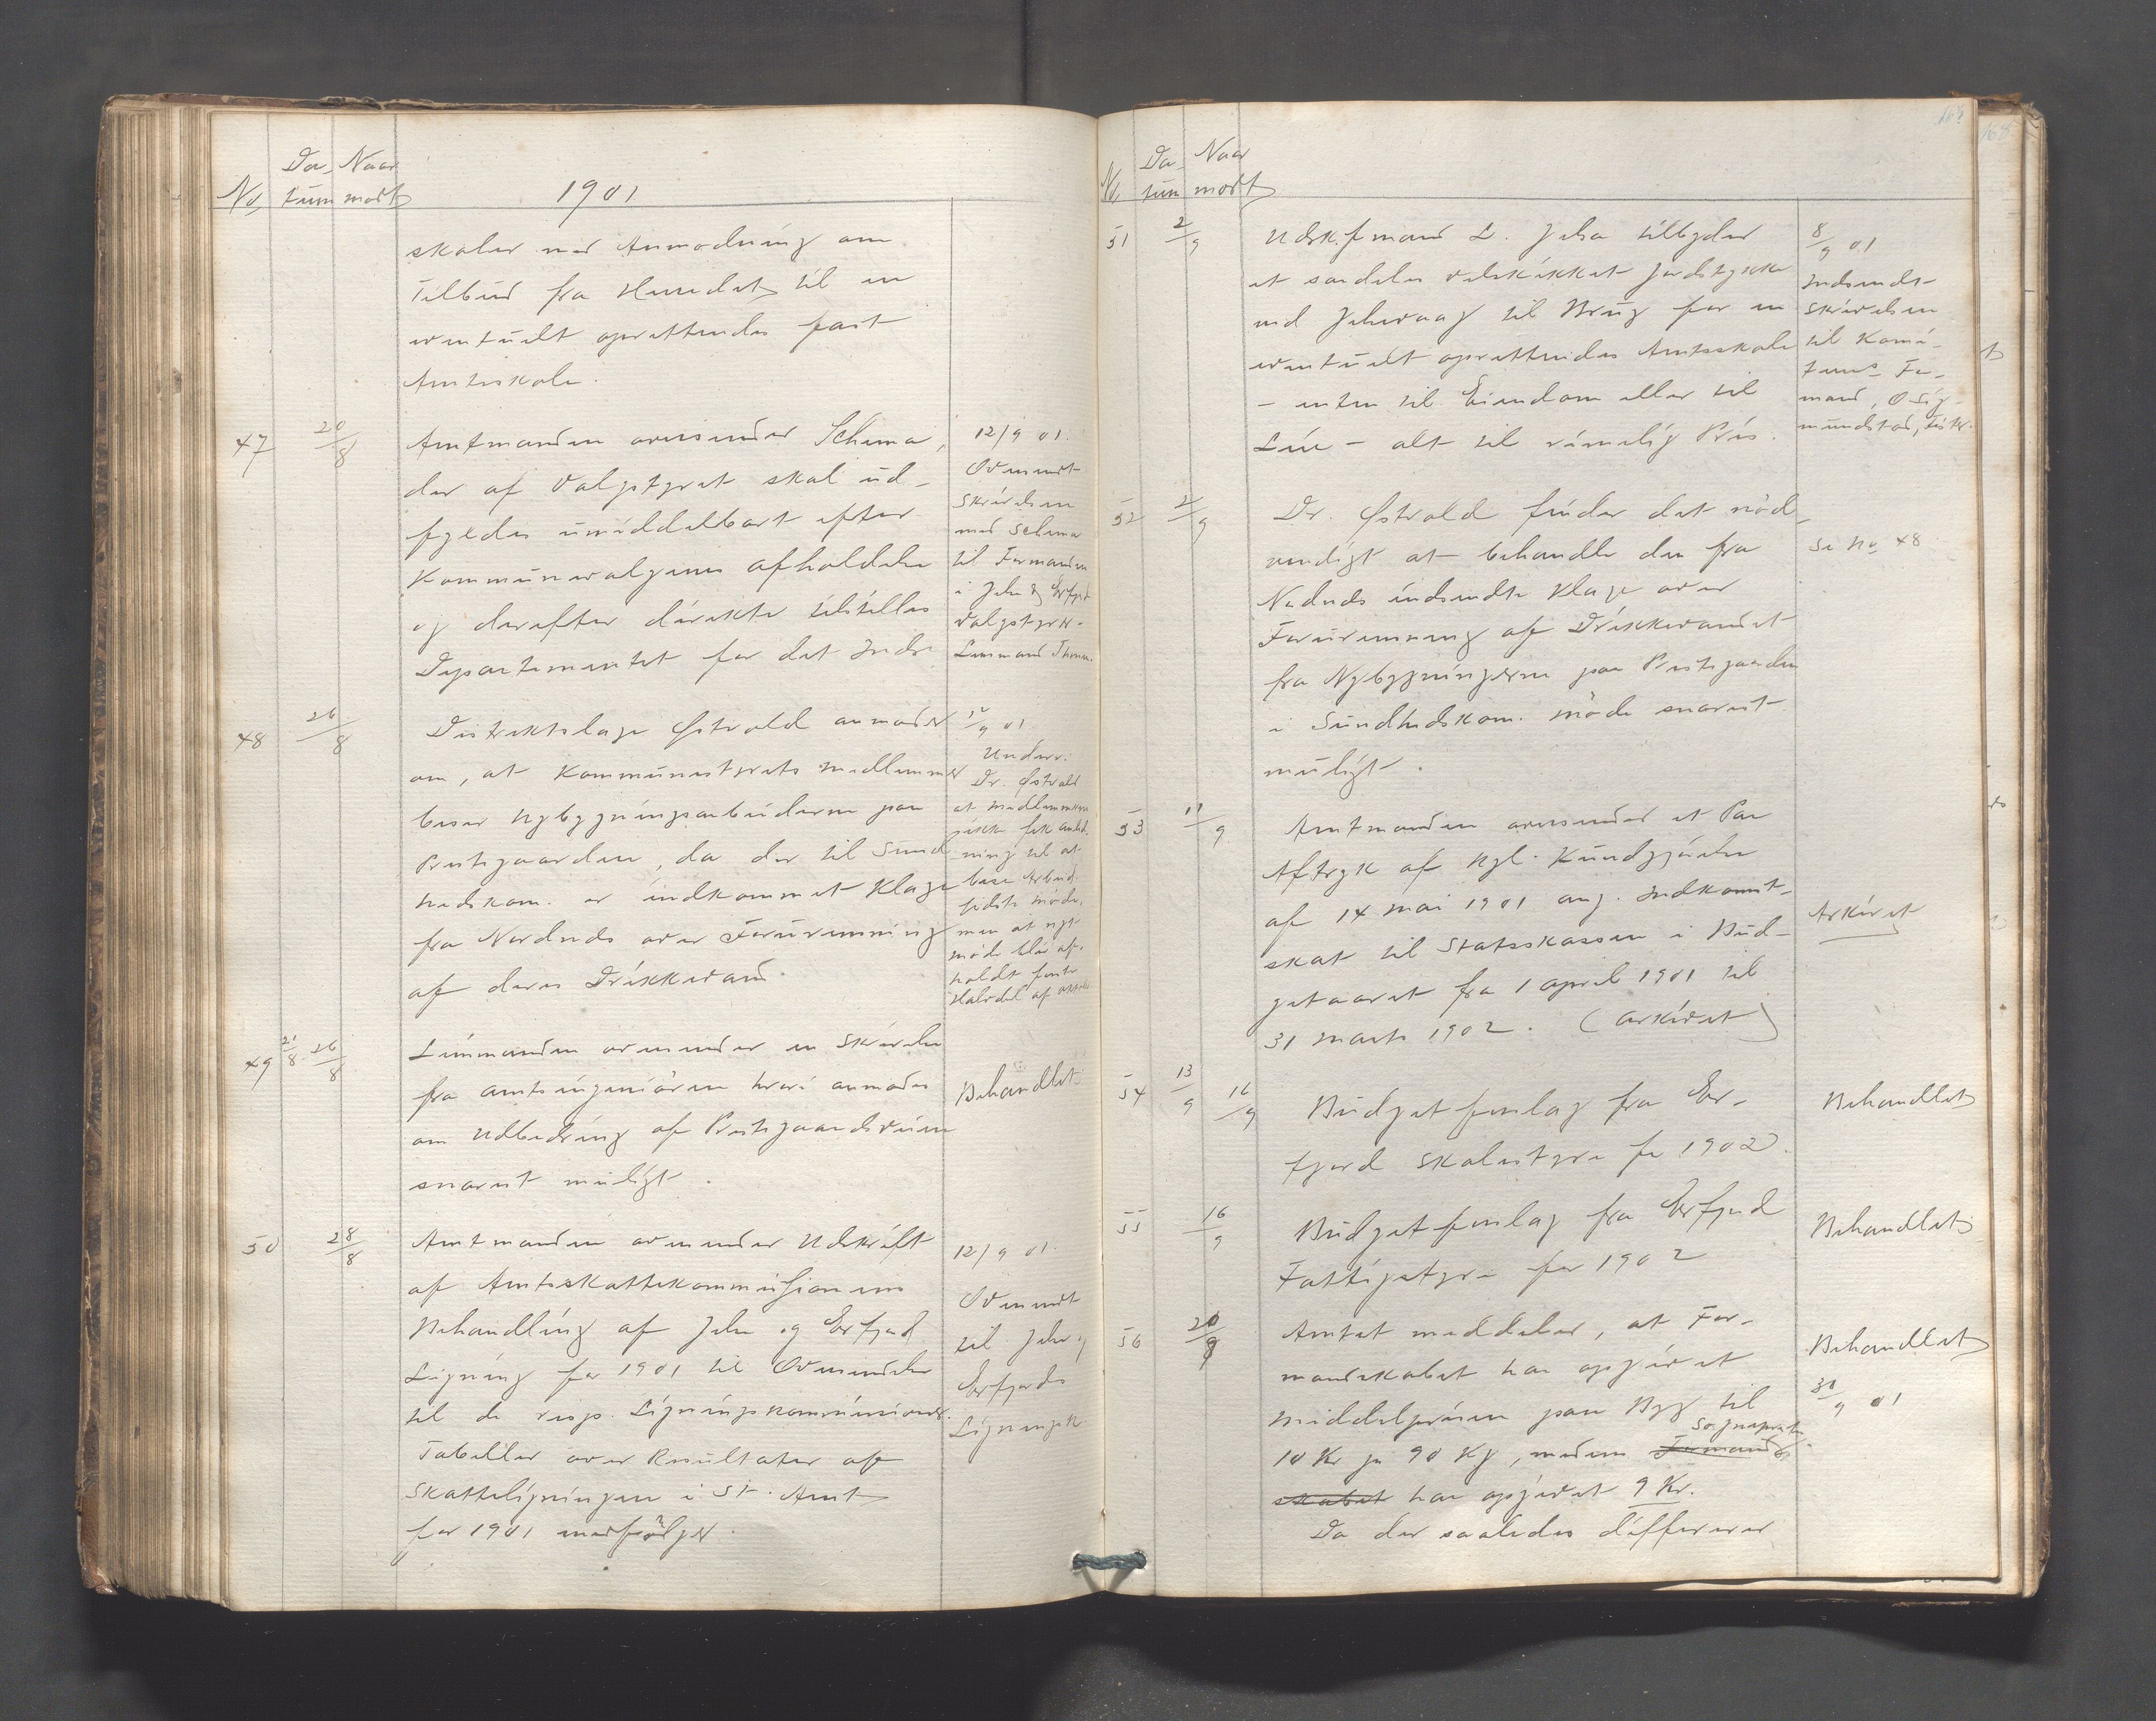 No. Da- Naar
tum modt. 1901
skolen med Anmodning om
Tilbud fra Herredet til en
eventuelt oprettendes fast
Amtsskole.
47 20/8 Amtmanden oversender Schema,
der af Valgstyret skal ud-
fyldes umiddelbart efter
Kommunevalgenes afholdelse
og derefter direkte tilstilles
Departementet for det Indre
12/9 01.
Oversendt
Skrivelsen
med Schema
til Formanden
i Jelse og Erfjord
Valgstyrer.
Lensmand
48 26/8 Distriktslæge Østvold anmoder
om, at Kommunestyrets Medlemmer
beser Nybygningsarbeiderne paa
Prestegaarden, da der til Sund-
hedskom. er indkommet Klage
fra Nordnes over Forurensning
af deres Drikkevand.
12/9 01.
Underr.
Dr. Østvold
at Medlemmerne
ikke fik anled-
ning til at
bese Arbeid.
sidste Møde,
men at nyt
Møde blir af-
holdt første
Halvdel af
49 21/8 26/8 Lensmanden oversender en Skrivelse
fra Amtsingeniøren hvori anmodes
om Udbedring af Prestegaardsveien
snarest muligt.
Behandlet
50 28/8 Amtmanden oversender Udskrift
af Amtsskattekommissionens
Behandling af Jelse og Erfjord
Ligning for 1901 til Oversendelse
til de resp. Ligningskommissioner.
Tabeller over Resultater af
Skatteligningen i St. Amt
for 1901 medfølger.
12/9 01.
Oversendt
til Jelse og
Erfjords
Ligningsk.
No. Da- Naar
tum modt.
51 2/9 Udsk.fmand L. Jelsa tilbyder
et særdeles velskikket Jordstykke
ved Jelsevaag til Brug for en
eventuelt oprettendes Amtsskole
- enten til Eiendom eller til
Leie - alt til rimelig Pris.
8/9 01
Indsendt
Skrivelsen
til Komi-
teens For-
mand, O. Sig-
mundstad,
52 2/9 Dr. Østvold finder det nød-
vendigt at behandle den fra
Nednes indsendte Klage over
Forurensning af Drikkevandet
fra Nybygningerne paa Prestegaarden
i Sundhedskom. Møde snarest
muligt.
Se No 48
53 11/9 Amtmanden oversender et Par
Aftryk af Kgl. Kundgjørelse
af 14 Mai 1901 ang. Indkomst-
skat til Statskassen i Bud-
getaaret fra 1 april 1901 til
31 Marts 1902. (Arkivet)
Arkivet
54 13/9 16/9 Budgetforslag fra Er-
fjord Skolestyre for 1902.
Behandlet
55 16/9 Budgetforslag fra Erfjord
Fattigstyre for 1902
Behandlet
56 20/9 Amtet meddeler, at For-
mandskabet har opgivet
Middelprisen paa Byg til
10 Kr pr 90 Kg, medens Formand- Sognepresten
skabet har opgivet 9 Kr.
Da der saaledes differerer
Behandlet
30/9 01